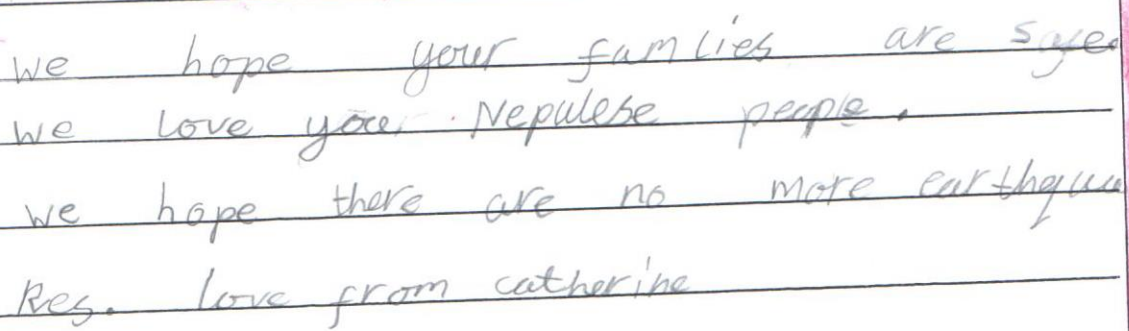 we hope your famlies are safe.
we love you. Nepulese people.
we hope there are no more earthqua
kes. love from catherine